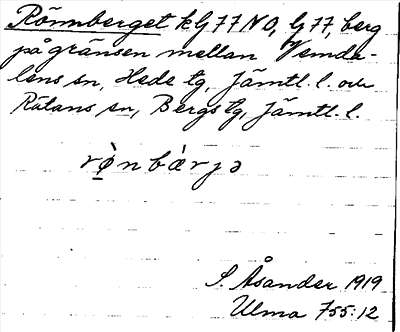 Rönnberget kG77NO, G77, berg
på gränsen mellan Vemda-
lens sn, Hede tg, Jämtl. l. och
Rätans sn, Bergs tg, Jämtl. l.
rø̀nbæ̀rjə
S. Åsander 1919
Ulma 755:12